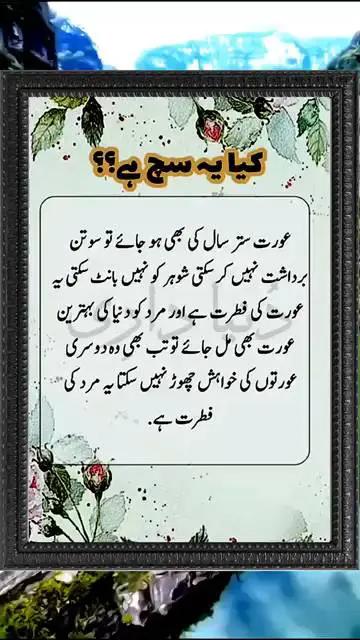 کیا یہ سچ ہے؟؟
عورت ستر سال کی بھی ہو جائے تو سوتن
برداشت نہیں کر سکتی شوہر کو نہیں بانٹ سکتی یہ
عورت کی فطرت ہے اور مرد کو دنیا کی بہترین
عورت بھی مل جائے تو تب بھی وہ دوسری
عورتوں کی خواہش چھوڑ نہیں سکتا یہ مرد کی
فطرت ہے.
دنیا داری